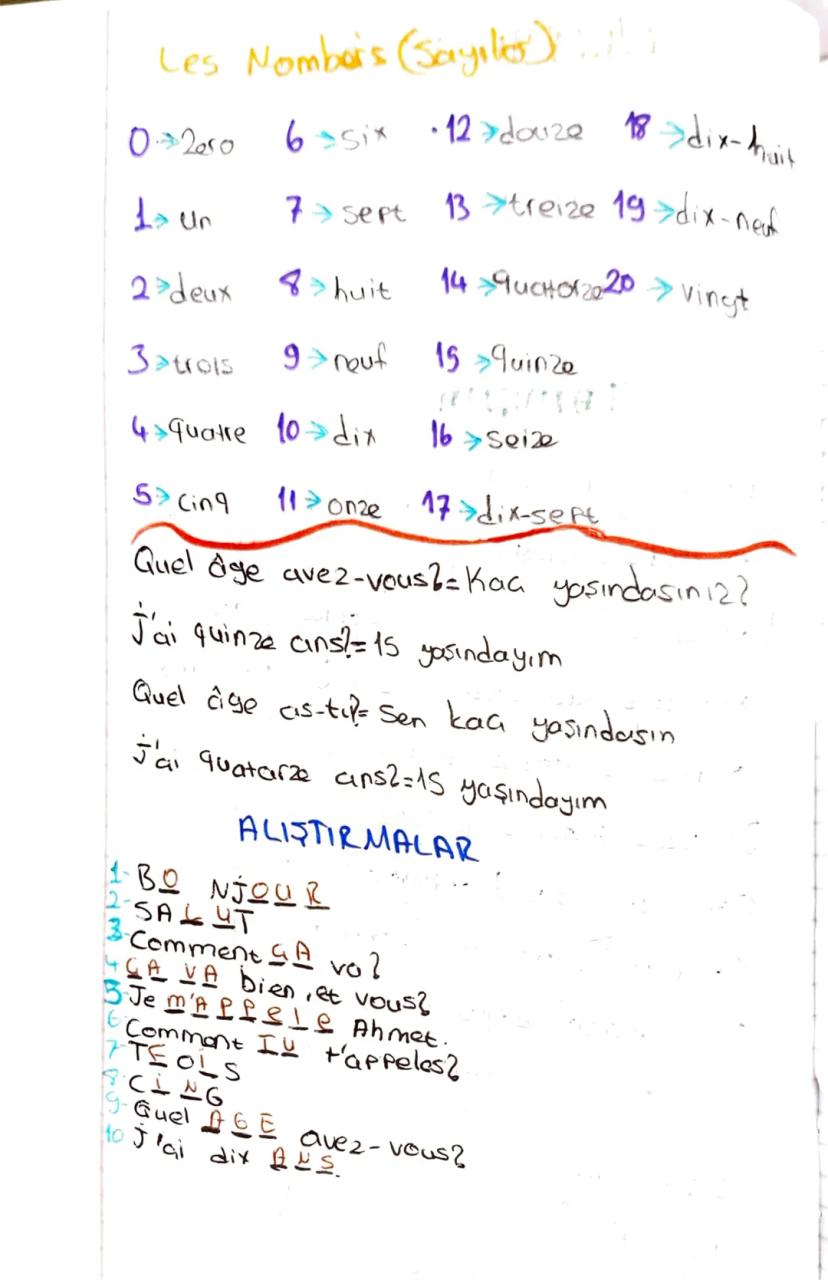 Les Nombers (Sayılar)
0 → Zero 6 → six 12 → douze 18 → dix-huit
1 → un 7 → sept 13 → treize 19 → dix-neuf
2 → deux 8 → huit 14 → quatorze 20 → vingt
3 → trois 9 → neuf 15 → quinze
4 → quatre 10 → dix 16 → seize
5 → cinq 11 → onze 17 → dix-sept
Quel âge avez-vous? = Kaç yaşındasınız?
j'ai quinze ans? = 15 yaşındayım
Quel âge as-tu? = Sen kaç yaşındasın
j'ai quatarze ans? = 15 yaşındayım
ALIŞTIRMALAR
1- BO NJOUR
2- SALUT
3- Comment ÇA va?
4- ÇA VA bien, et vous?
5- Je m'APPelle Ahmet.
6- Comment TU t'appeles?
7- TEOİS
8- CİNG
9- Quel AGE avez-vous?
10 j'ai dix ANS.